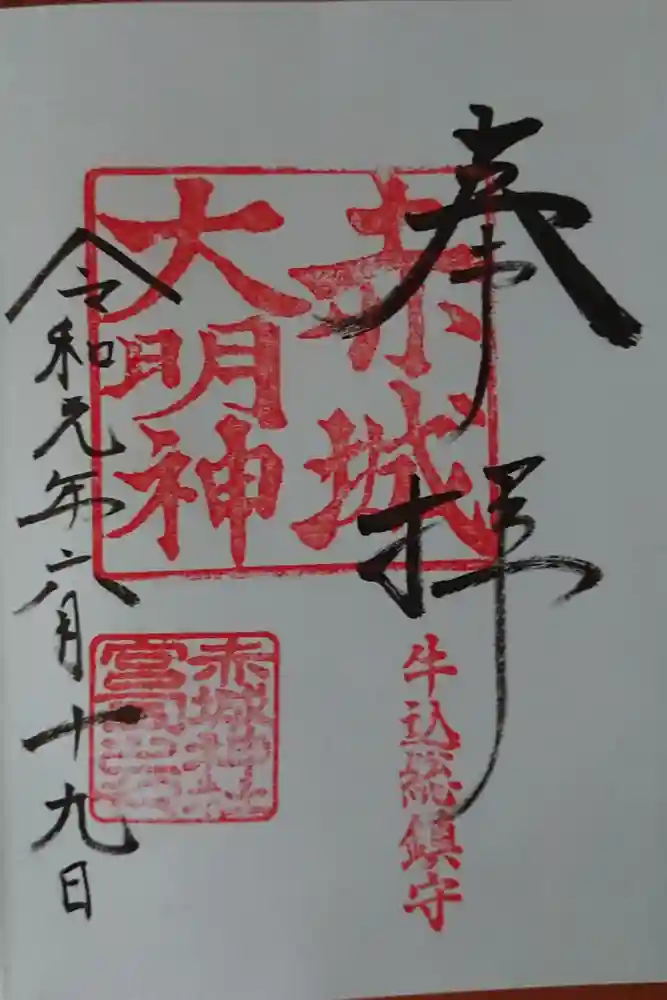 奉拝
赤城
大明神
牛込総鎮守
赤城神社
宮司之印
令和元年六月十九日